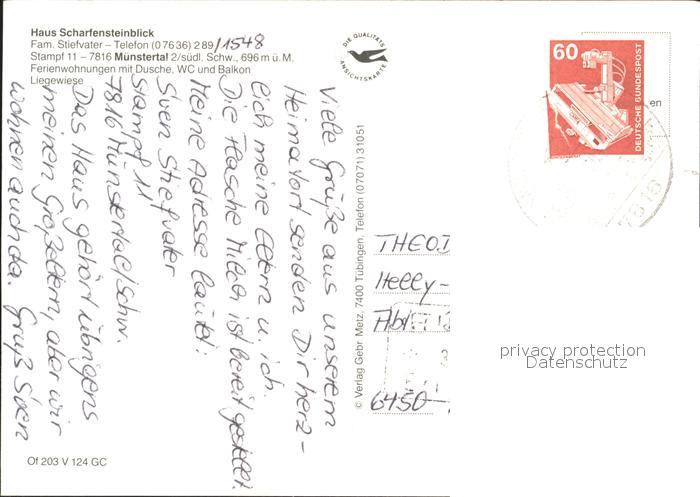 Haus Scharfensteinblick
Fam. Stiefvater – Telefon (0 76 36) 2 89 /1548
Stampf 11 – 7816 Münstertal 2/südl. Schw., 696 m ü. M.
Ferienwohnungen mit Dusche, WC und Balkon
Liegewiese
DIE QUALITÄTS
ANSICHTSKARTE
60
DEUTSCHE BUNDESPOST
en
7816
Viele Grüße aus unserem
Heimatort senden Dir herz-
lich meine Eltern u. ich.
Die Flasche Milch ist bereit gestellt.
Meine Adresse lautet:
Sven Stiefvater
Stampf 11
7816 Münstertal/Schw.
Das Haus gehört übrigens
meinen Großeltern, aber wir
wohnen auch da. Gruß Sven
© Verlag Gebr. Metz, 7400 Tübingen, Telefon (07071) 31051
THEO
Helly-
6450
privacy protection
Datenschutz
Of 203 V 124 GC